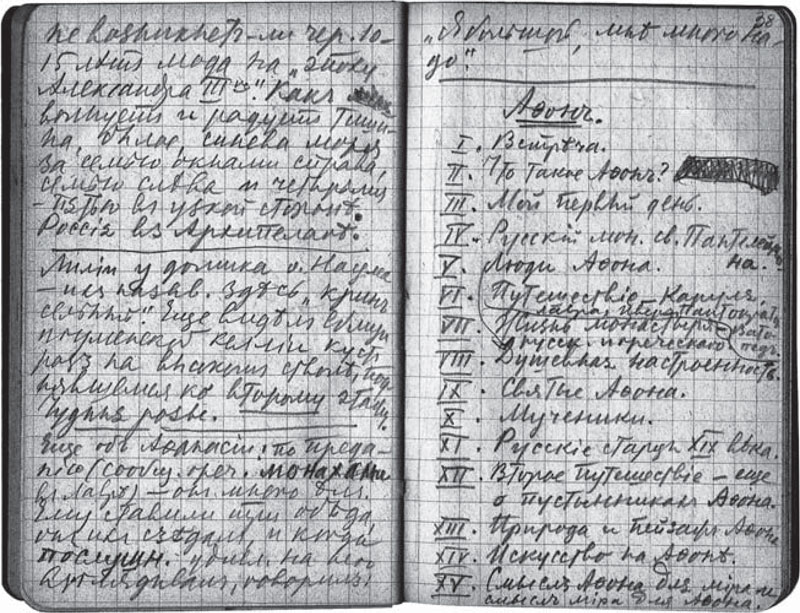 не возникнетъ-ли чер. 10-
15 лѣтъ мода на „эпоху
Александра III го". Какъ
волнуетъ и радуетъ тиши-
на, бѣлое, синева моря
за семью окнами справа,
семью слѣва и четырьмя
-пятью въ узкой сторонѣ.
Россія въ Архипелагѣ.
Лиліи у домика о. Наума
здѣсь „кринъ
сельный". Еще видѣлъ вблизи
игуменской келліи кусты
розъ на высокихъ
ко второму этажу.
Чудныя розы.
Еще объ Аѳанасіи: по преда-
нію (сообщ. греч. монахами
въ лаврѣ) — онъ много ѣлъ.
Ему ставили три обѣда,
онъ ихъ съѣдалъ, и когда
послушн. на него
взглядывалъ, говорилъ:
38
„Я большой, мнѣ много на-
до".
Аѳонъ.
I. Встрѣча.
II. Что такое Аѳонъ?
III. Мой первый день.
IV. Русскій мон. св. Пантелеймо-
на.
V. Люди Аѳона.
VI. Путешествіе. Каруля,
лавра, Иверъ, Пантократ.
Вато-
педъ.
VII. Жизнь монастыря
русск. и греческого
VIII. Душевная настроенность.
IX. Святые Аѳона.
X. Мученики.
XI. Русскіе старцы XIX вѣка.
XII. Второе путешествіе — еще
о пустынникахъ Аѳона.
XIII. Природа и пейзажъ Аѳона
XIV. Искусство на Аѳонѣ.
XV. Смыслъ Аѳона для міра и
смыслъ міра для Аѳона.